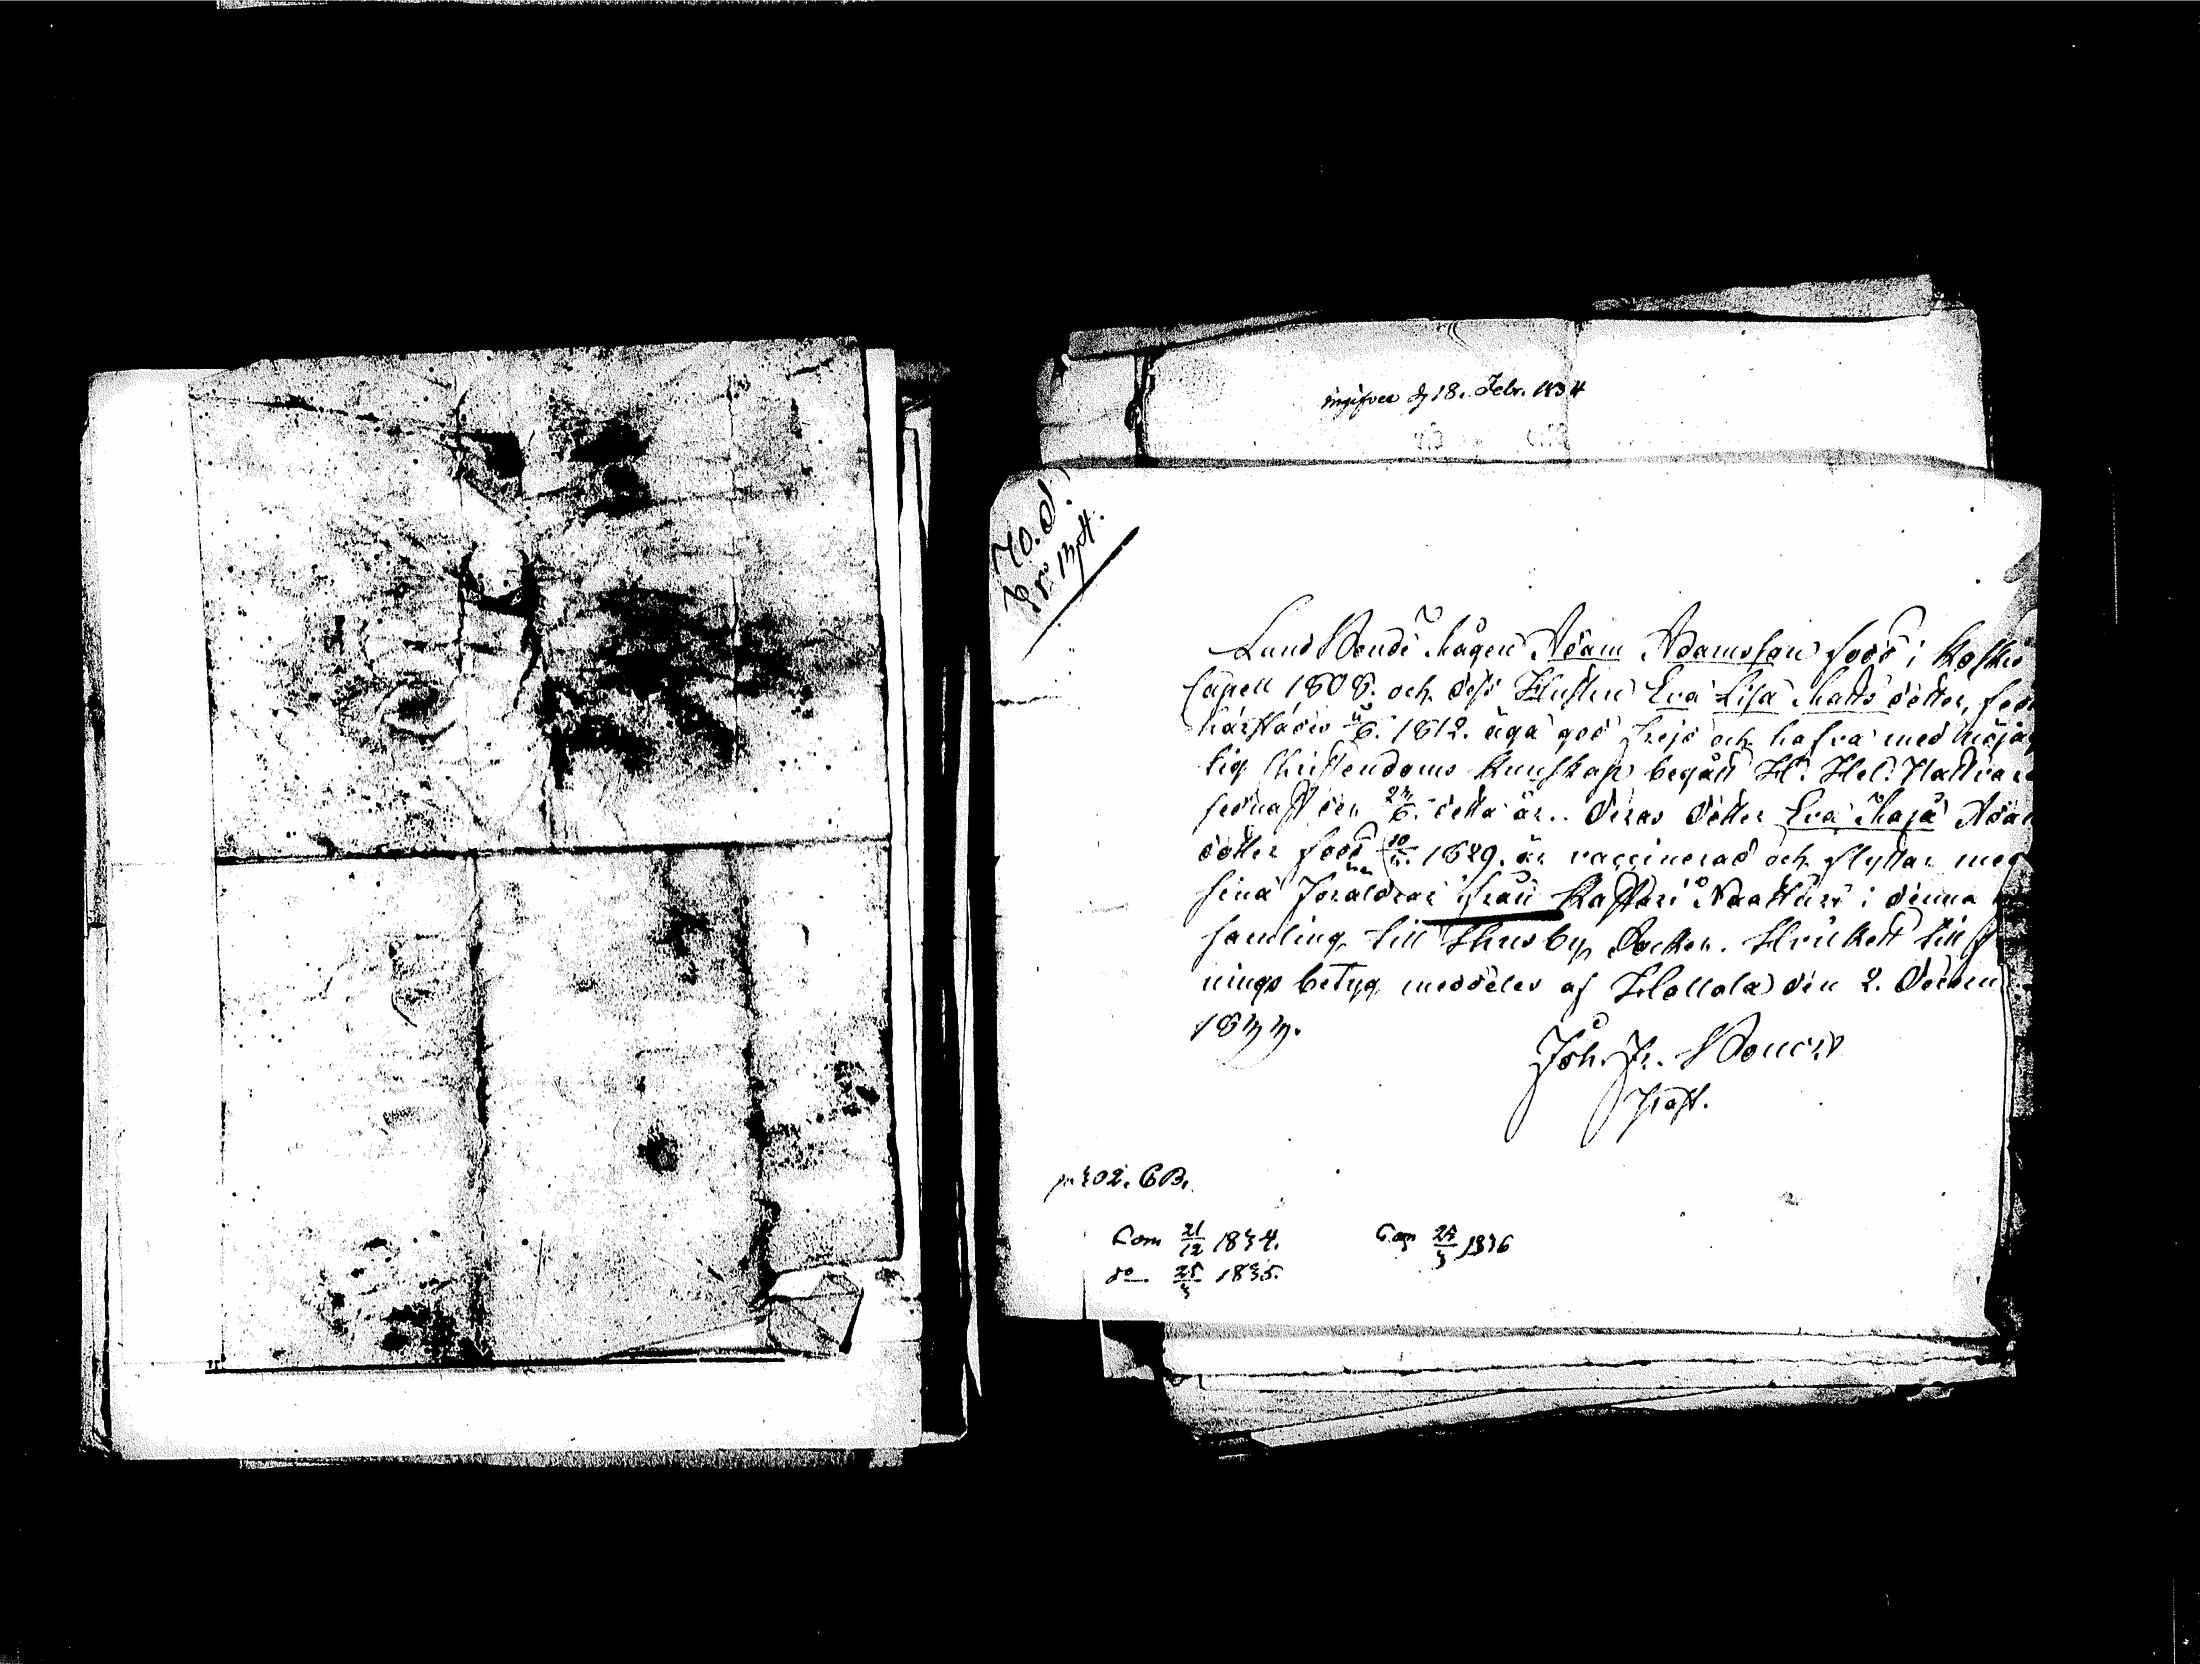 ingifven d 18. Febr. 1834
70. d.
Landtbonde Mågen Adam Adamsson född i Koskis
Capell 1808. och dess Hustru Eva Lisa Matts dotter, född
härstädes 1812. äga god frejd och hafva med nöjak
lig Christendoms kunskap begått H. H. Nattvard
sednast den detta år. Deras dotter Eva Maja Adams
dotter född 1829. är vaccinerad och flyttar med
sina Föräldrar från i denna
samling till Thusby Socken. Hvilket till
nings betyg meddeles af Hollola den 2. Decemb
1833.
Joh. Fr.
Prost.
p. 302. CB.
Com 21/12 1834. Com 25/3 1836
do 25/3 1835.